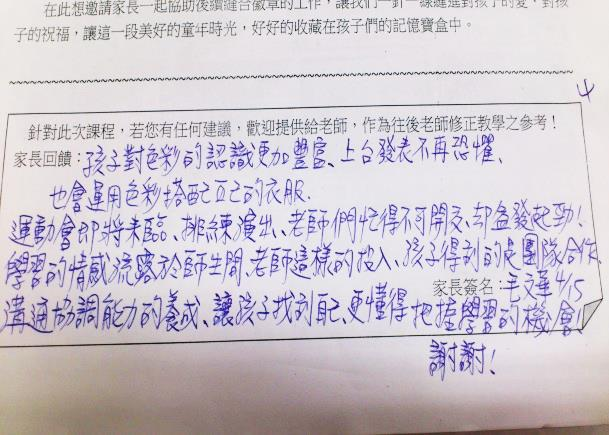 在此想邀請家長一起協助後續縫合徽章的工作，讓我們一針一線縫進對孩子的愛，對孩
子的祝福，讓這一段美好的童年時光，好好的收藏在孩子們的記憶寶盒中。
4
針對此次課程，若您有任何建議，歡迎提供給老師，作為往後老師修正教學之參考！
家長回饋：孩子對色彩的認識更加豐富、上台發表不再恐懼、
也會運用色彩搭配自己的衣服.
運動會即將來臨、排練演出、老師們忙得不可開交、却益發起勁!
學習的情感流露於師生間、老師這樣的投入、孩子得到的是團隊合作、
家長簽名：毛文華 4/15
溝通協調能力的養成、讓孩子找到自己、更懂得把握學習的機會!
謝謝!